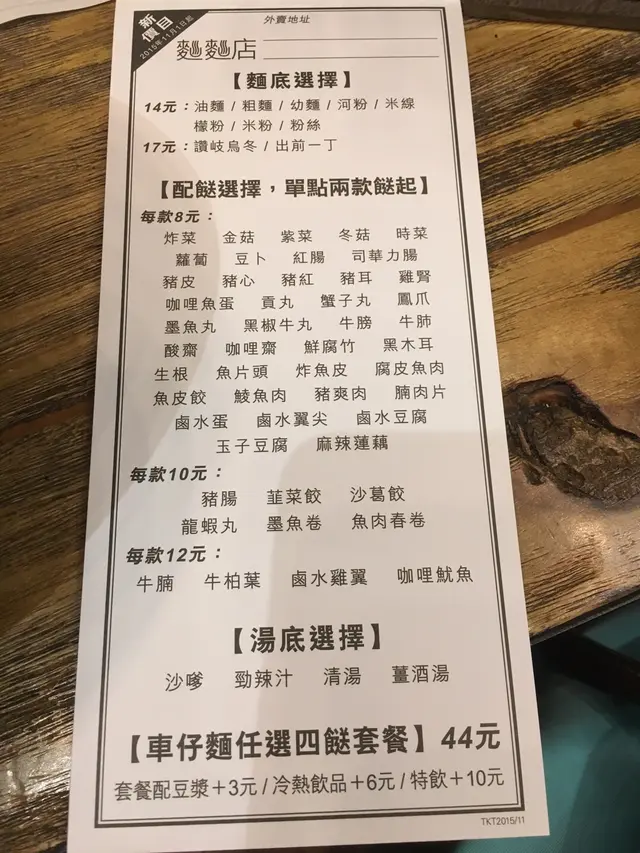 新
價目
2015年11月1日起
外賣地址
麵麵店
【麵底選擇】
14元：油麵 / 粗麵 / 幼麵 / 河粉 / 米線
檬粉 / 米粉 / 粉絲
17元：讚岐烏冬 / 出前一丁
【配餸選擇，單點兩款餸起】
每款8元：
炸菜 金菇 紫菜 冬菇 時菜
蘿蔔 豆卜 紅腸 司華力腸
豬皮 豬心 豬紅 豬耳 雞腎
咖哩魚蛋 貢丸 蟹子丸 鳳爪
墨魚丸 黑椒牛丸 牛膀 牛肺
酸齋 咖哩齋 鮮腐竹 黑木耳
生根 魚片頭 炸魚皮 腐皮魚肉
魚皮餃 鯪魚肉 豬爽肉 腩肉片
鹵水蛋 鹵水翼尖 鹵水豆腐
玉子豆腐 麻辣蓮藕
每款10元：
豬腸 韮菜餃 沙葛餃
龍蝦丸 墨魚卷 魚肉春卷
每款12元：
牛腩 牛柏葉 鹵水雞翼 咖哩魷魚
【湯底選擇】
沙嗲 勁辣汁 清湯 薑酒湯
【車仔麵任選四餸套餐】44元
套餐配豆漿＋3元 / 冷熱飲品＋6元 / 特飲＋10元
TKT2015/11